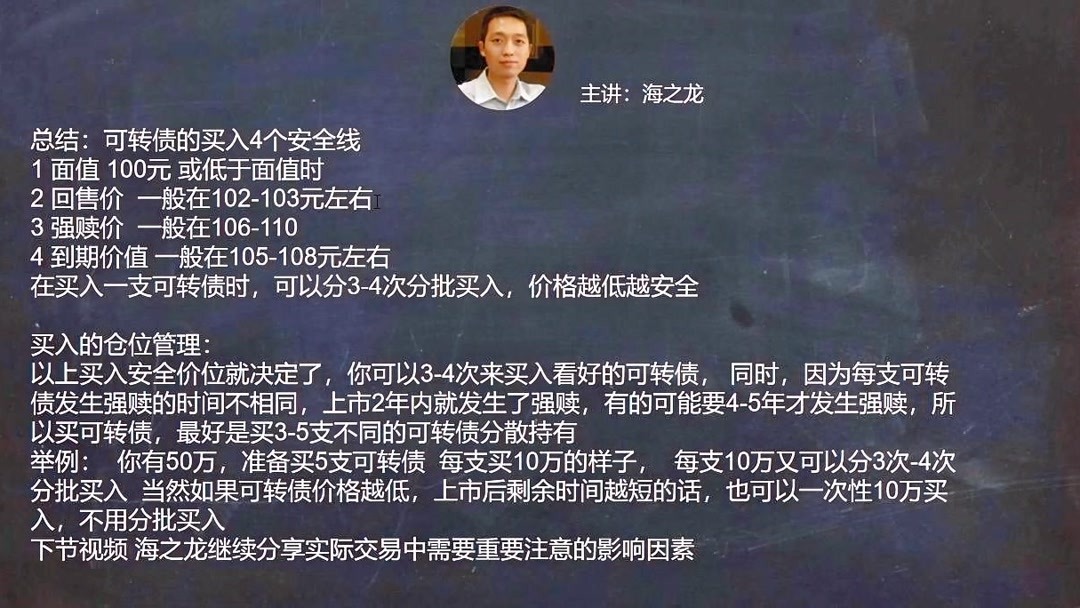 主讲：海之龙
总结：可转债的买入4个安全线
1 面值 100元 或低于面值时
2 回售价 一般在102-103元左右
3 强赎价 一般在106-110
4 到期价值 一般在105-108元左右
在买入一支可转债时，可以分3-4次分批买入，价格越低越安全
买入的仓位管理：
以上买入安全价位就决定了，你可以3-4次来买入看好的可转债， 同时，因为每支可转
债发生强赎的时间不相同，上市2年内就发生了强赎，有的可能要4-5年才发生强赎，所
以买可转债，最好是买3-5支不同的可转债分散持有
举例： 你有50万，准备买5支可转债 每支买10万的样子， 每支10万又可以分3次-4次
分批买入 当然如果可转债价格越低，上市后剩余时间越短的话，也可以一次性10万买
入，不用分批买入
下节视频 海之龙继续分享实际交易中需要重要注意的影响因素